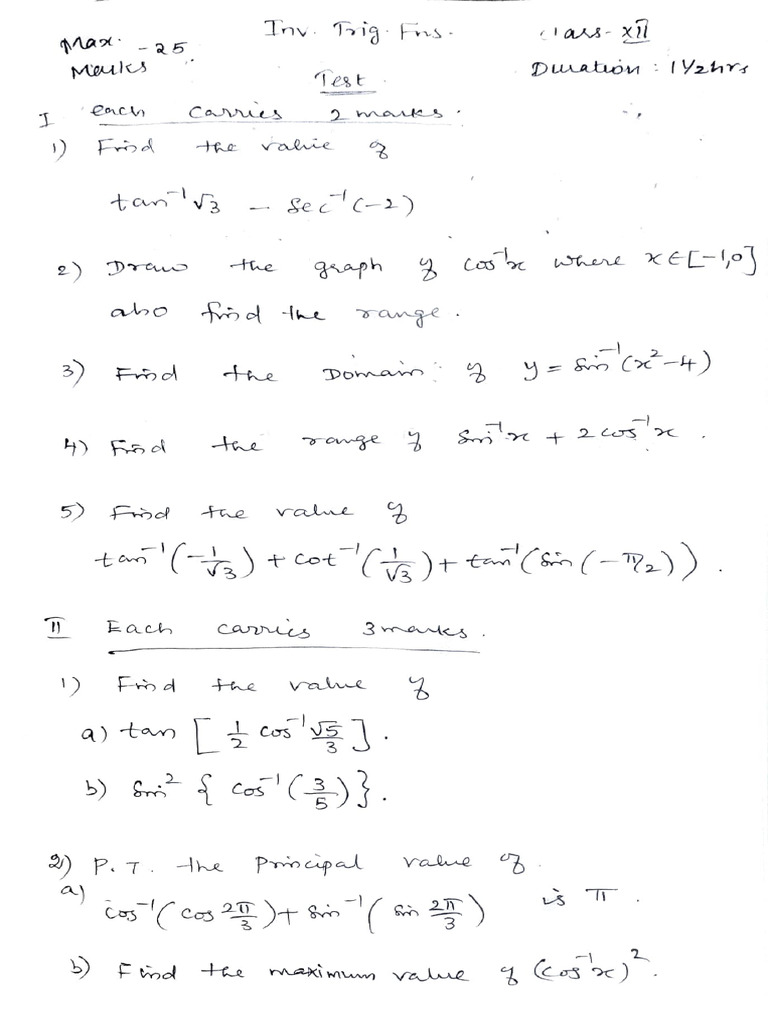 Inv. Trig. Fns. Class-XII
Max. Marks - 25. Duration: 1½hrs
Test
I each carries 2 marks.
1) Find the value of
tan⁻¹√3 - Sec⁻¹(-2)
2) Draw the graph of cos⁻¹x where x∈[-1,0]
also find the range.
3) Find the Domain: of y = Sin⁻¹(x²-4)
4) Find the range of Sin⁻¹x + 2cos⁻¹x.
5) Find the value of
tan⁻¹(-1/√3) + cot⁻¹(1/√3) + tan⁻¹(Sin(-π/2)).
II Each carries 3 marks.
1) Find the value of
a) tan [1/2 cos⁻¹ √5/3].
b) Sin² {cos⁻¹(3/5)}.
2) P.T. the Principal value of
a) cos⁻¹(cos 2π/3) + Sin⁻¹(Sin 2π/3) is π.
b) Find the maximum value of (cos⁻¹x)².